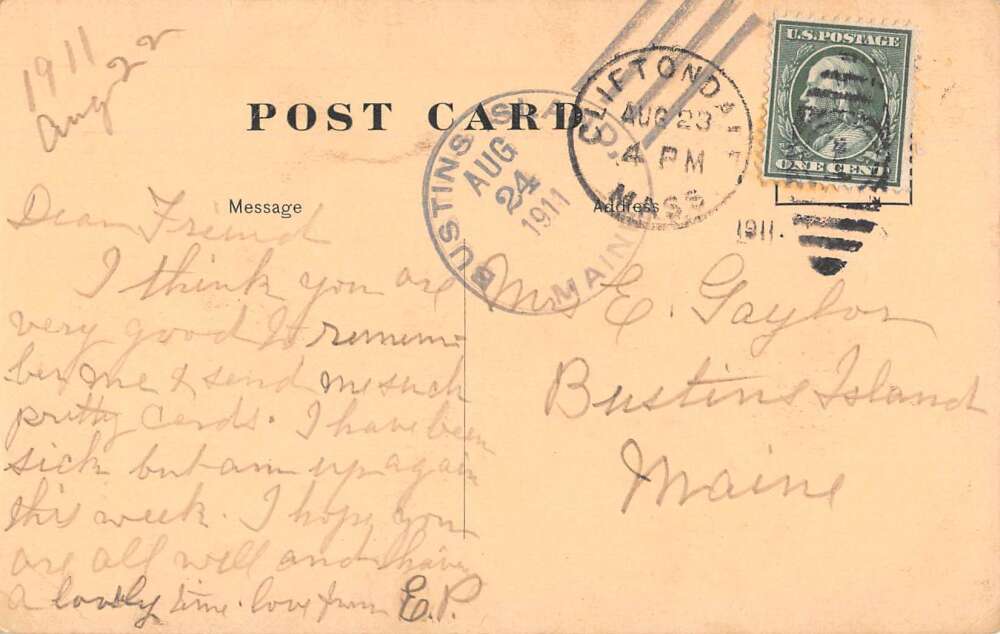 1911
Aug 22
POST CARD
BUSTINS ISLAND
AUG
24
1911
MAINE
CLIFTONDALE
AUG 23
4 PM
MASS
1911.
U.S. POSTAGE
ONE CENT
Message
Address
Dear Friend
I think you are
very good to remem-
ber me & send me such
pretty cards. I have been
sick but am up again
this week. I hope you
are all well and having
a lovely time. love from E.P.
Mrs E. Gaylor
Bustins Island
Maine